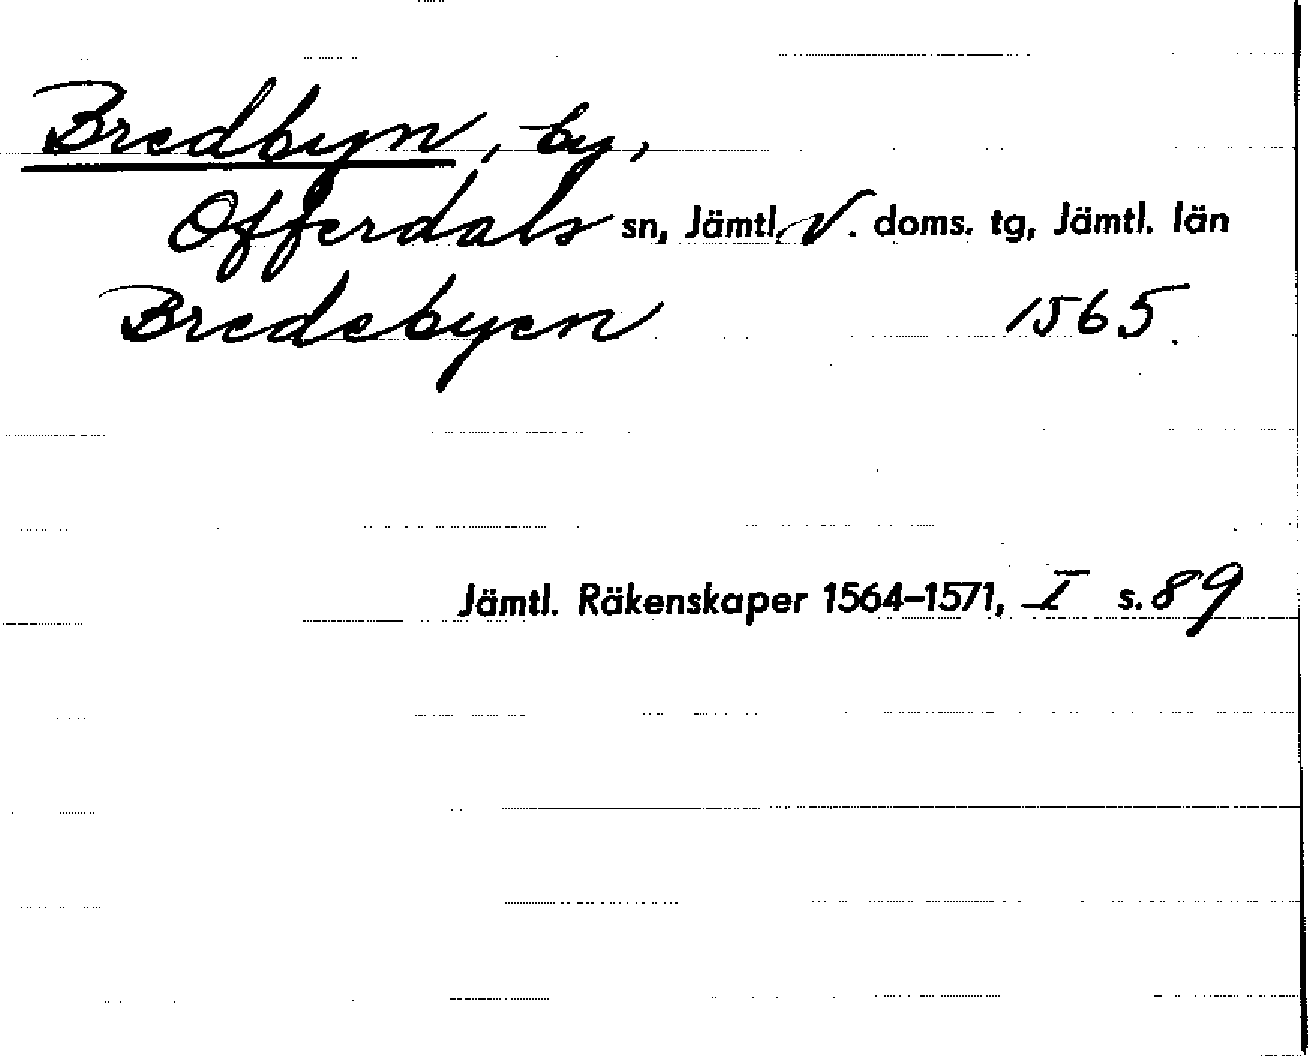 Bredbyn, by,
Offerdals sn, Jämtl. V. doms. tg, Jämtl. län
Bredebyen 1565.
Jämtl. Räkenskaper 1564–1571, I s. 89